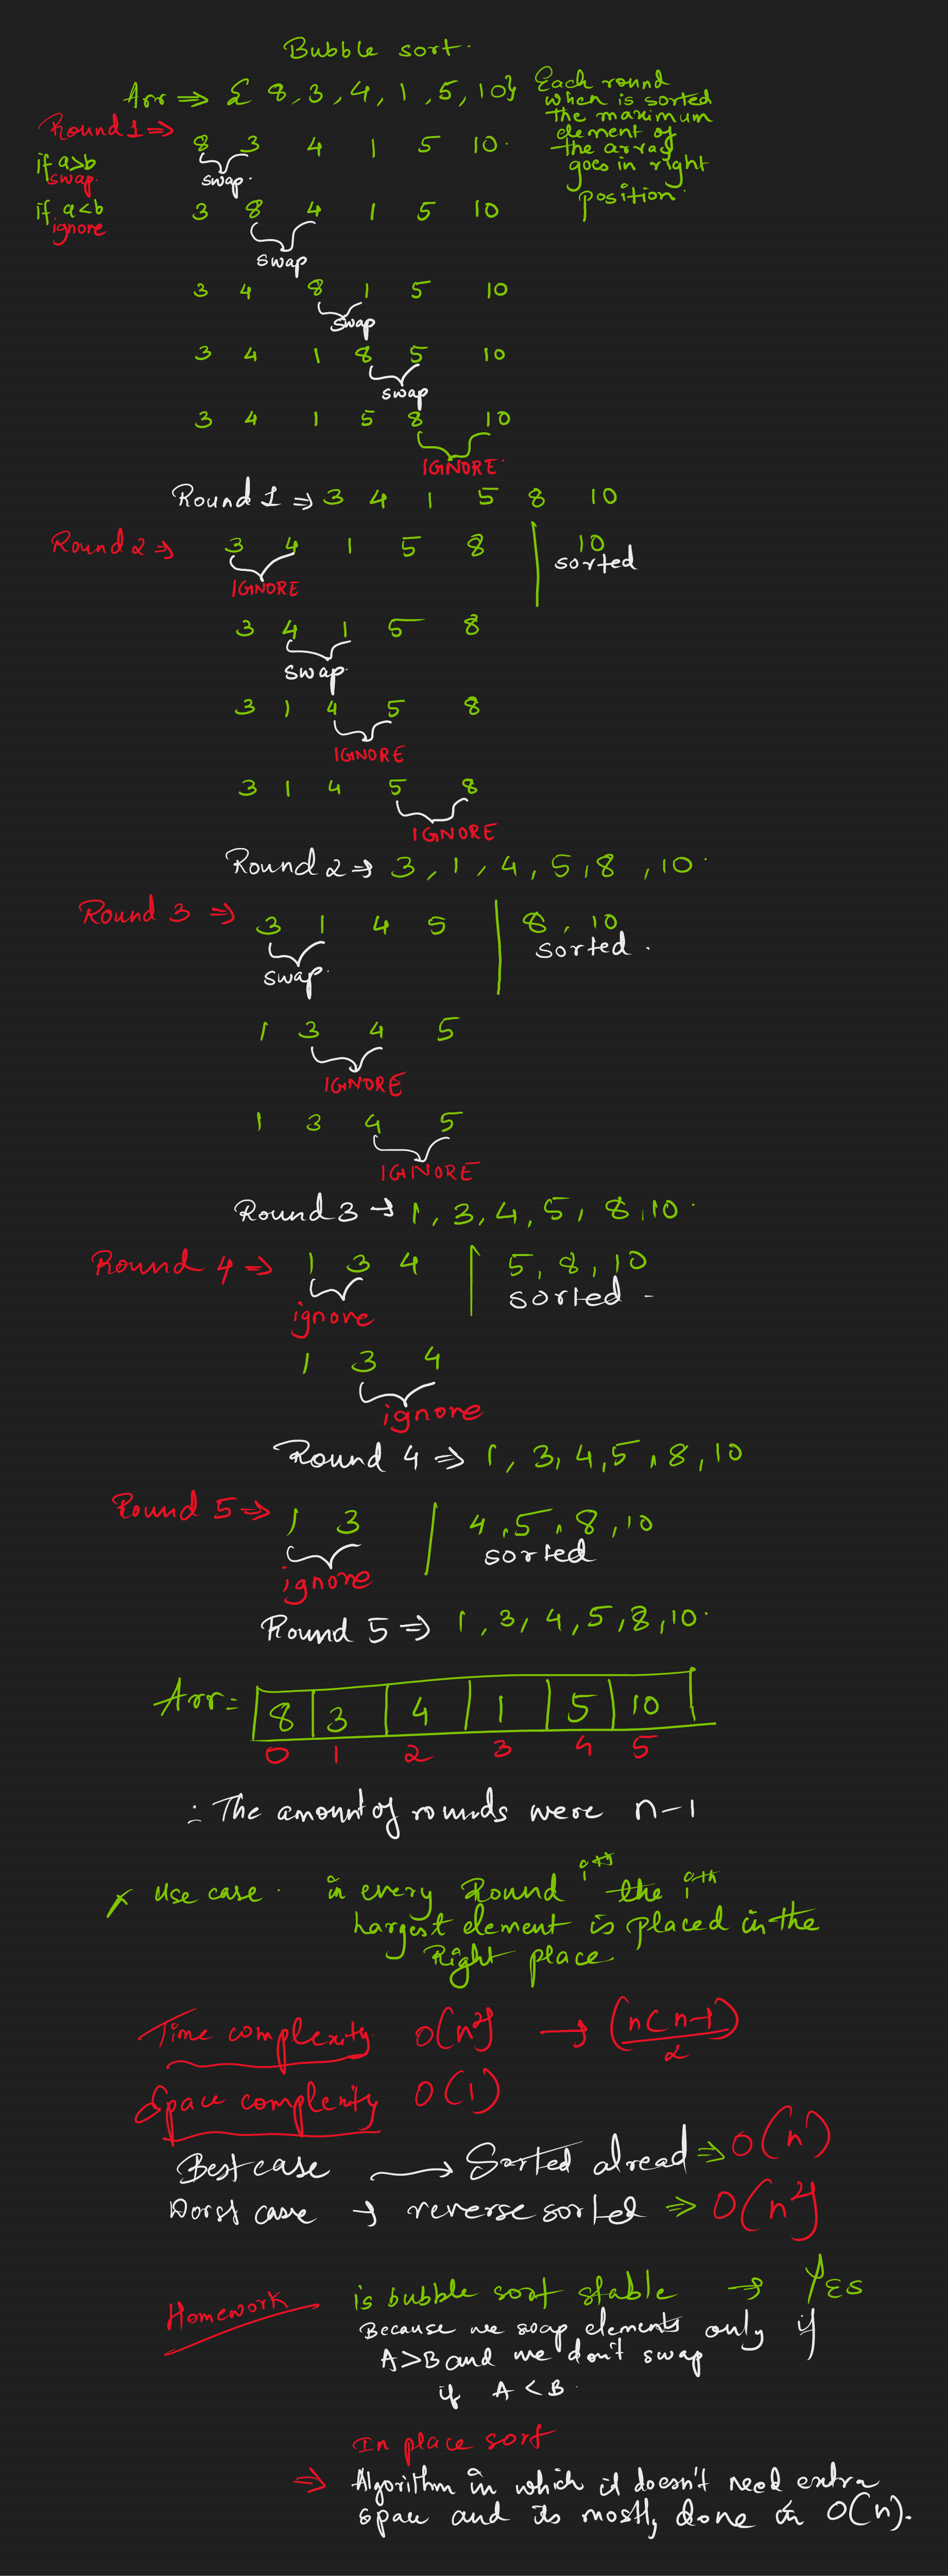 Bubble sort.
Arr ⇒ { 8, 3, 4, 1, 5, 10}
Each round
when is sorted
the maximum
element of
the array
goes in right
position.
Round 1 ⇒
8 3 4 1 5 10.
if a>b
swap.
swap.
if a<b
ignore
3 8 4 1 5 10
swap
3 4 8 1 5 10
swap
3 4 1 8 5 10
swap
3 4 1 5 8 10
IGNORE.
Round 1 ⇒ 3 4 1 5 8 10
Round 2 ⇒ 3 4 1 5 8 | 10
sorted
IGNORE
3 4 1 5 8
swap.
3 1 4 5 8
IGNORE
3 1 4 5 8
IGNORE
Round 2 ⇒ 3, 1, 4, 5, 8, 10.
Round 3 ⇒ 3 1 4 5 | 8, 10
sorted.
swap.
1 3 4 5
IGNORE
1 3 4 5
IGNORE
Round 3 → 1, 3, 4, 5, 8, 10.
Round 4 ⇒ 1 3 4 | 5, 8, 10
sorted -
ignore
1 3 4
ignore
Round 4 ⇒ 1, 3, 4, 5, 8, 10
Round 5 ⇒ 1 3 | 4, 5, 8, 10
sorted
ignore
Round 5 ⇒ 1, 3, 4, 5, 8, 10.
Arr = 8 3 4 1 5 10
0 1 2 3 4 5
∴ The amount of rounds were n-1
Use case. in every Round ith the ith
largest element is placed in the
Right place.
Time complexity O(n²) → (n(n-1)/2)
Space complexity O(1)
Best case → Sorted alread ⇒ O(n)
Worst case → reverse sorted ⇒ O(n²)
Homework
is bubble sort stable → YES
Because we swap elements only if
A>B and we don't swap
if A < B.
In place sort
⇒ Algorithm in which it doesn't need extra
space and its mostly done in O(n).